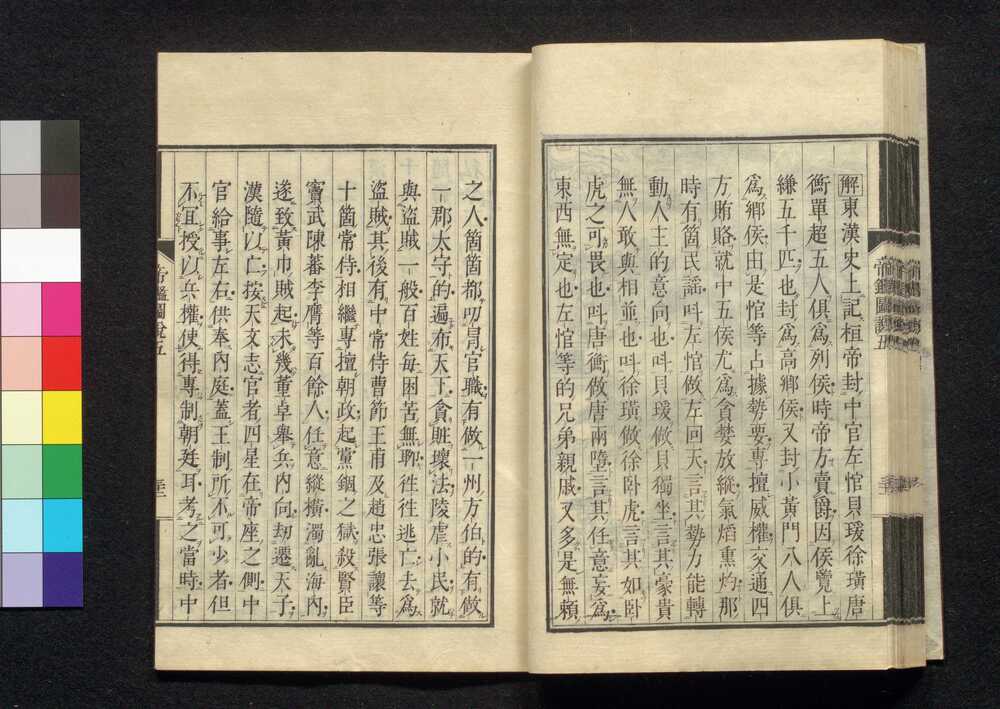 解東漢史上記桓帝封中官左悺貝瑗徐璜唐
衡單超五人俱爲列侯時帝方賣爵因侯覽上
縑五千匹也封爲高鄉侯又封小黃門八人俱
爲鄉侯由是悺等占據勢要專擅威權交通四
方賄賂就中五侯尤爲貪婪放縱氣焰熏灼那
時有箇民謡呌左悺做左回天言其勢力能轉
動人主的意向也呌貝瑗做貝獨坐言其豪貴
無人敢與相並也呌徐璜做徐卧虎言其如卧
虎之可畏也呌唐衡做唐兩墮言其任意妄爲
東西無定也左悺等的兄弟親戚又多是無賴
之人箇箇都叨㝵官職有做一州方伯的有做
一郡太守的遍布天下貪贓壞法陵虐小民就
與盜賊一般百姓每困苦無聊徃徃逃亡去爲
盜賊其後有中常侍曹節王甫及趙忠張讓等
十箇常侍相繼專擅朝政起黨錮之獄殺賢臣
竇武陳蕃李膺等百餘人任意縱橫濁亂海內
遂致黃巾賊起未幾董卓舉兵內向刼遷天子
漢隨以亡按天文志宦者四星在帝座之側中
官給事左右供奉內庭蓋王制所不可少者但
不宜授以兵權使得專制朝廷耳考之當時中
帝鑑圖說五